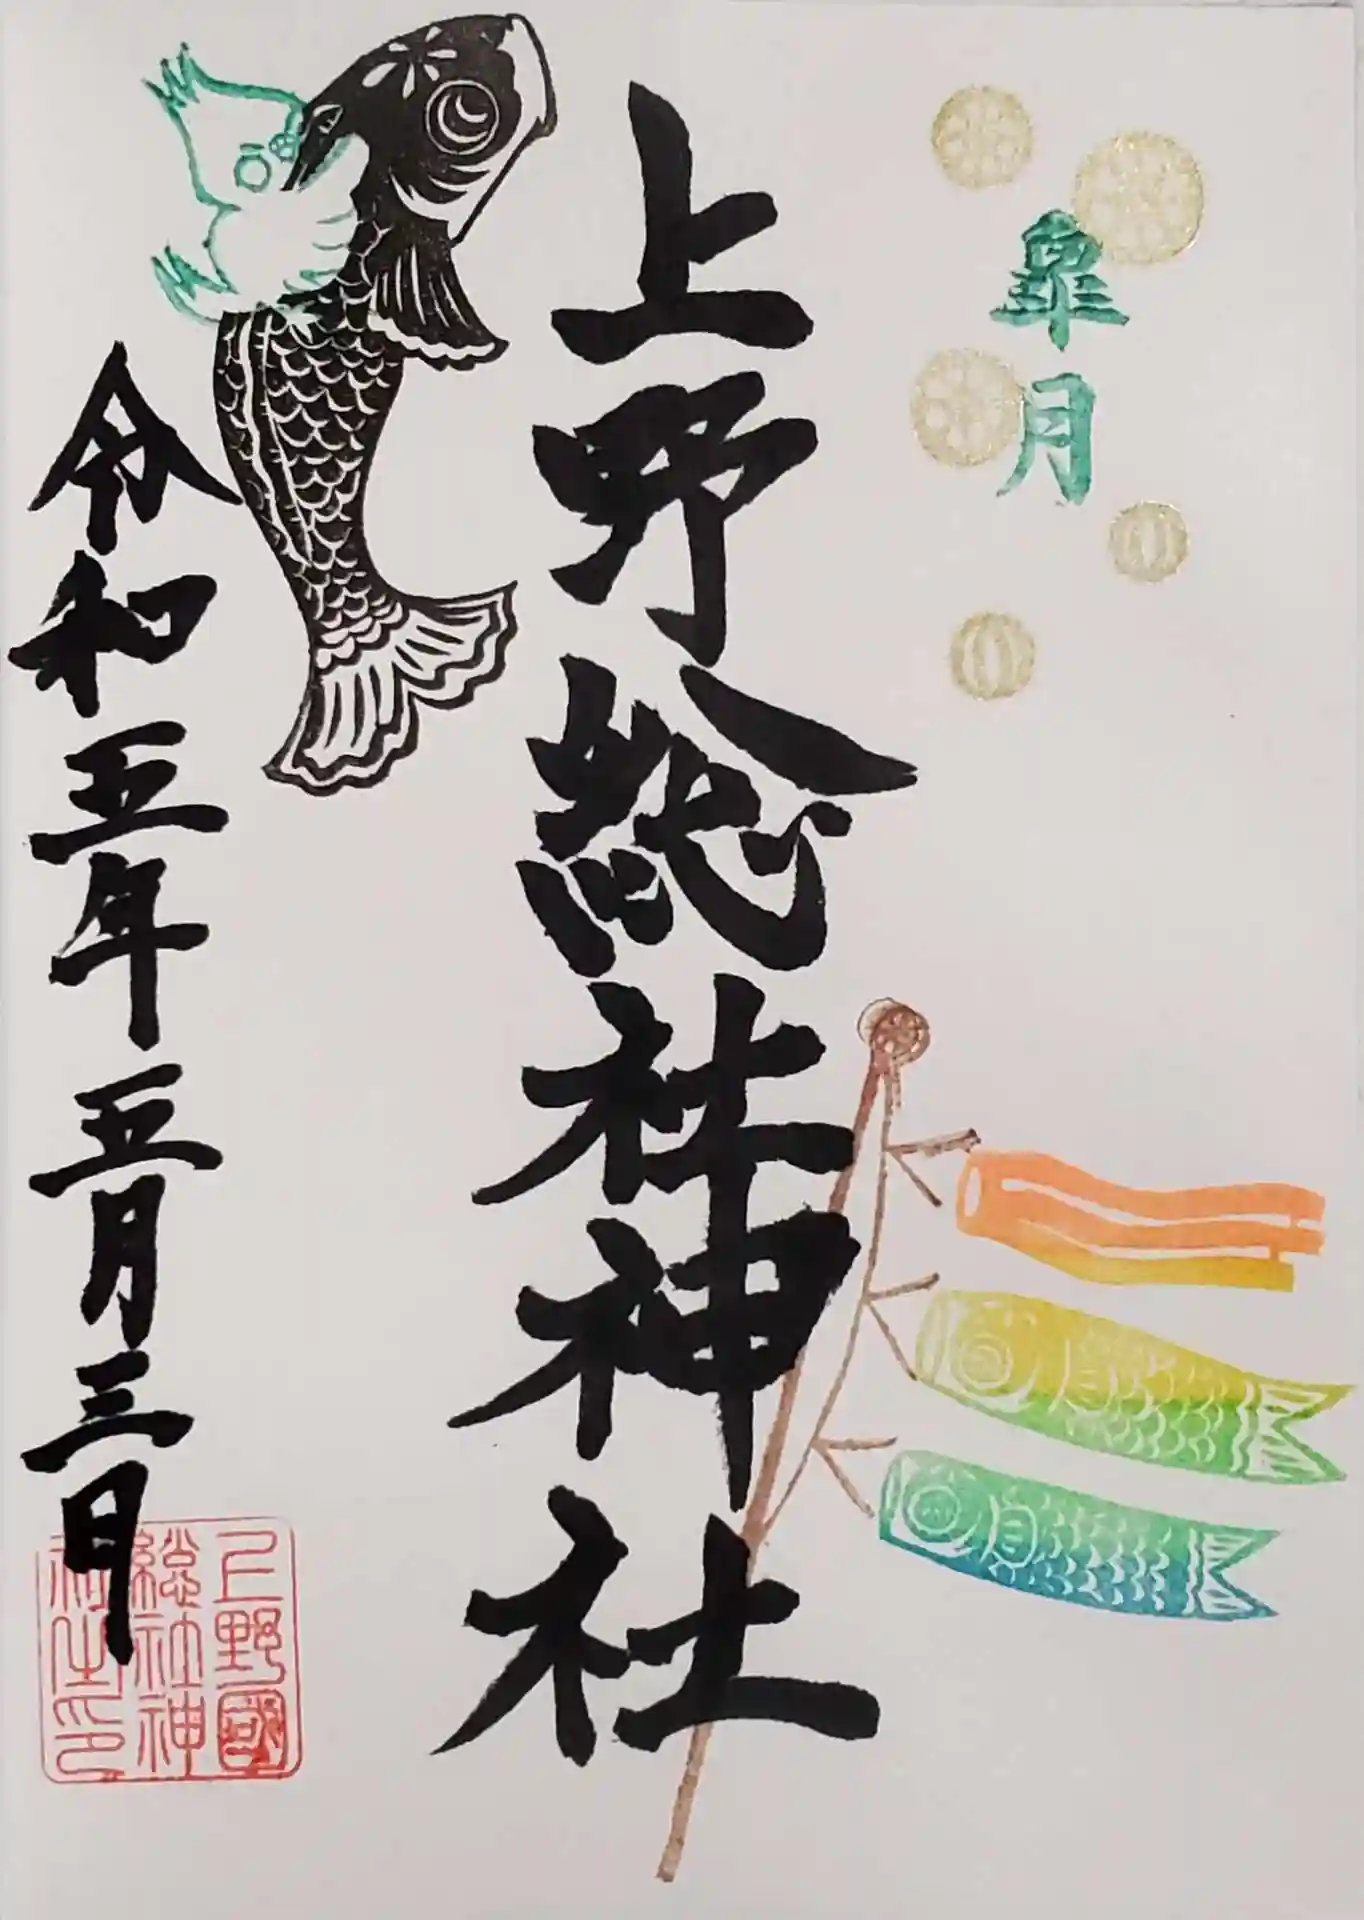 皐月
上野総社神社
令和五年五月三日
上野國
総社神
社之印